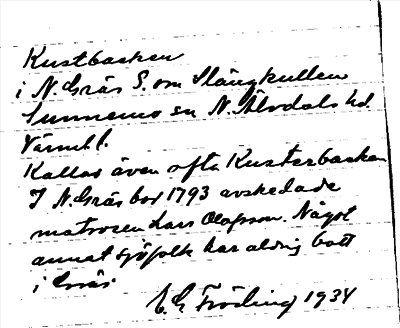 Kustbacken
i N. Gräs S. om Slängkullen
Sunnemo sn N. Älvdals hd.
Värml.
Kallas även ofta Kusterbacken
I N. Gräs bor 1793 avskedade
matrosen Lars Olafsson. Något
annat sjöfolk har aldrig bott
i Gräs
E. G. Fröding 1934